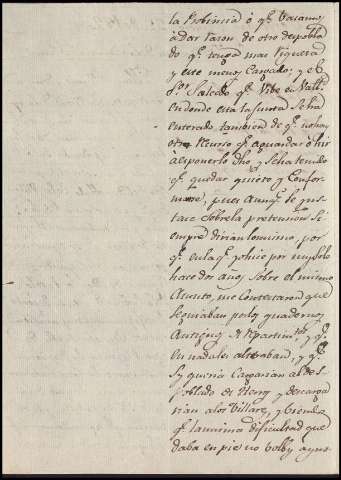 la Probincia ó q.e Vacamos
a dar razon de otro despobla
do q.e tenga mas Viguera
y este menos Cargado; y el
S.or Salcedo q.e Vibe en Vall.
en donde esta la Junta Seha
enterado tambien de q.e no hay
otro recurso q.e aguardar ó hir
à esponerlo dho, y Seha tenido
q.e quedar quieto y Confor
marse, pues aunq.e se
Sobre la pretension Si
empre dirian lo mismo, por
q.e en la q.e yo hice por mi solo
hace dos años Sobre el mismo
Asunto, me Contestaron que
Seguiaban por los quaderno
Antiguos de Repartim.tos y q.e
en nada les alteraban, y q.e
Sy queria Cargarian al des
poblado de y descarga
rian a los Villare, y biendo
q.e la misma dificultad que
daba en pie no Volby a